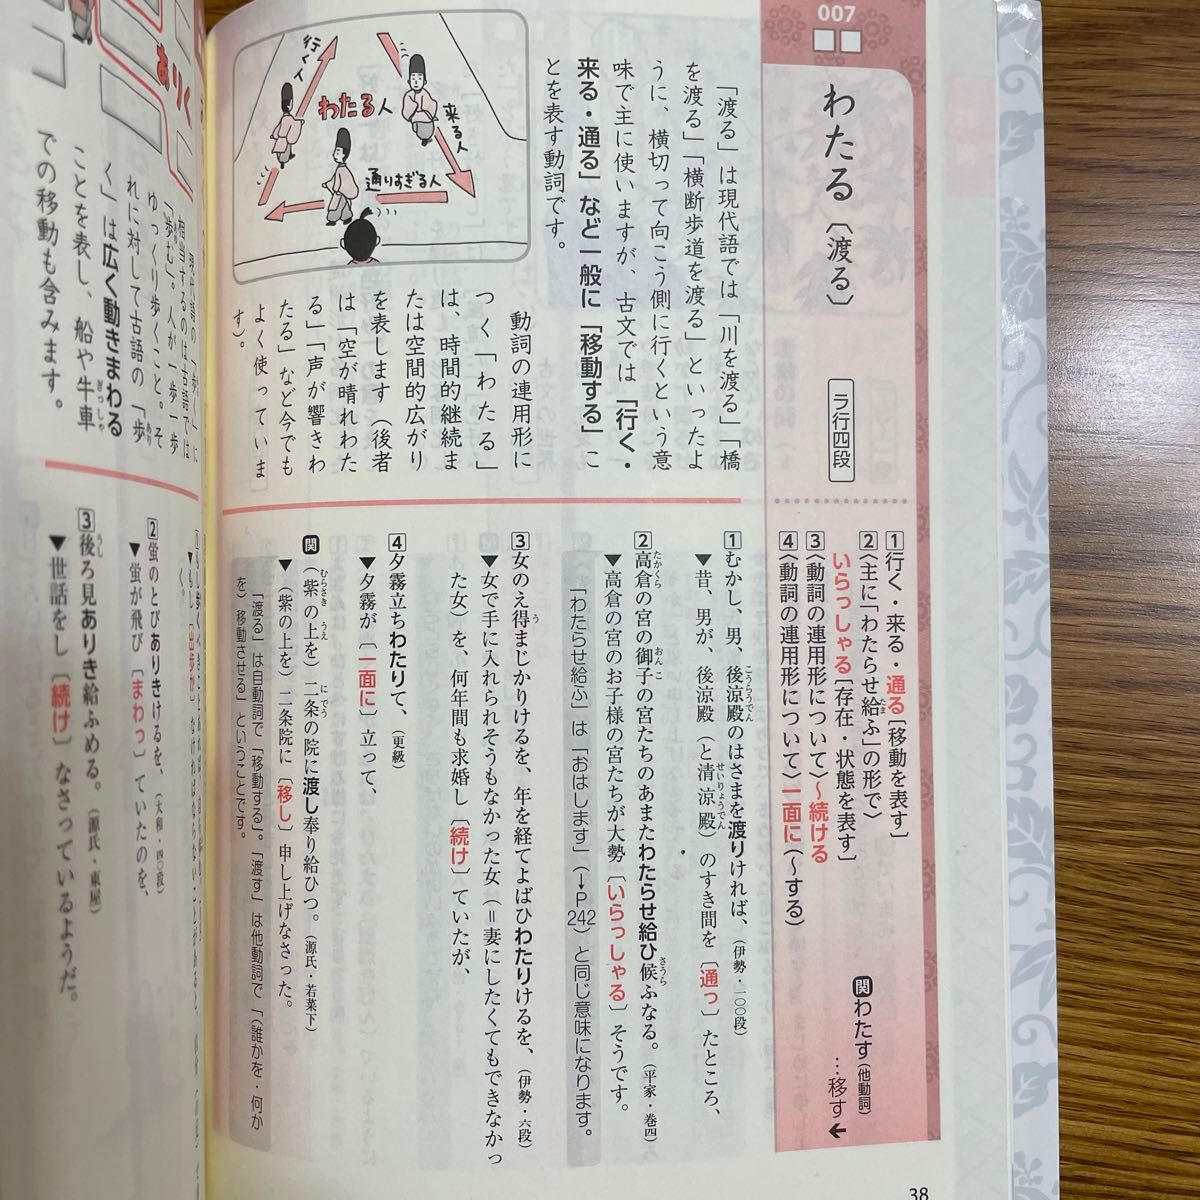 007
わたる〔渡る〕
ラ行四段
1行く・来る・通る[移動を表す]
2〈主に「わたらせ給ふ」の形で〉
いらっしゃる[存在・状態を表す]
3〈動詞の連用形について〉～続ける
4〈動詞の連用形について〉一面に(～する)
関わたす(他動詞)
…移す←
「渡る」は現代語では「川を渡る」「橋
を渡る」「横断歩道を渡る」といったよ
うに、横切って向こう側に行くという意
味で主に使いますが、古文では「行く・
来る・通る」など一般に「移動する」こ
とを表す動詞です。
行く人
わたる人
来る人
通りすぎる人
動詞の連用形に
つく「わたる」
は、時間的継続ま
たは空間的広がり
を表します(後者
は「空が晴れわた
る」「声が響きわ
たる」など今でも
よく使っていま
す)。
1むかし、男、後涼殿のはさまを渡りければ、(伊勢・一〇〇段)
こうらうでん
▼昔、男が、後涼殿(と清涼殿)のすき間を〔通っ〕たところ、
せいりょうでん
2高倉の宮の御子の宮たちのあまたわたらせ給ひ候ふなる。(平家・巻四)
たかくら
おんこ
さうら
▼高倉の宮のお子様の宮たちが大勢〔いらっしゃる〕そうです。
「わたらせ給ふ」は「おはします」(→P242)と同じ意味になります。
3女のえ得まじかりけるを、年を経てよばひわたりけるを、(伊勢・六段)
▼女で手に入れられそうもなかった女(=妻にしたくてもできなかっ
た女)を、何年間も求婚し〔続け〕ていたが、
4夕霧立ちわたりて、(更級)
▼夕霧が〔一面に〕立って、
関(紫の上を)二条の院に渡し奉り給ひつ。(源氏・若菜下)
むらさき うえ
にでう
▼(紫の上を)二条院に〔移し〕申し上げなさった。
「渡る」は自動詞で「移動する」。「渡す」は他動詞で「(誰かを・何か
を)移動させる」ということです。
38
ありく
相当するのは古語では
「歩む」。人が一歩一歩
ゆっくり歩くこと。そ
れに対して古語の「歩
く」は広く動きまわる
ことを表し、船や牛車
ぎっしゃ
での移動も含みます。
2蛍のとびありきけるを、(大和・四〇段)
▼蛍が飛び〔まわっ〕ていたのを、
3後ろ見ありき給ふめる。(源氏・東屋)
うし
▼世話をし〔続け〕なさっているようだ。